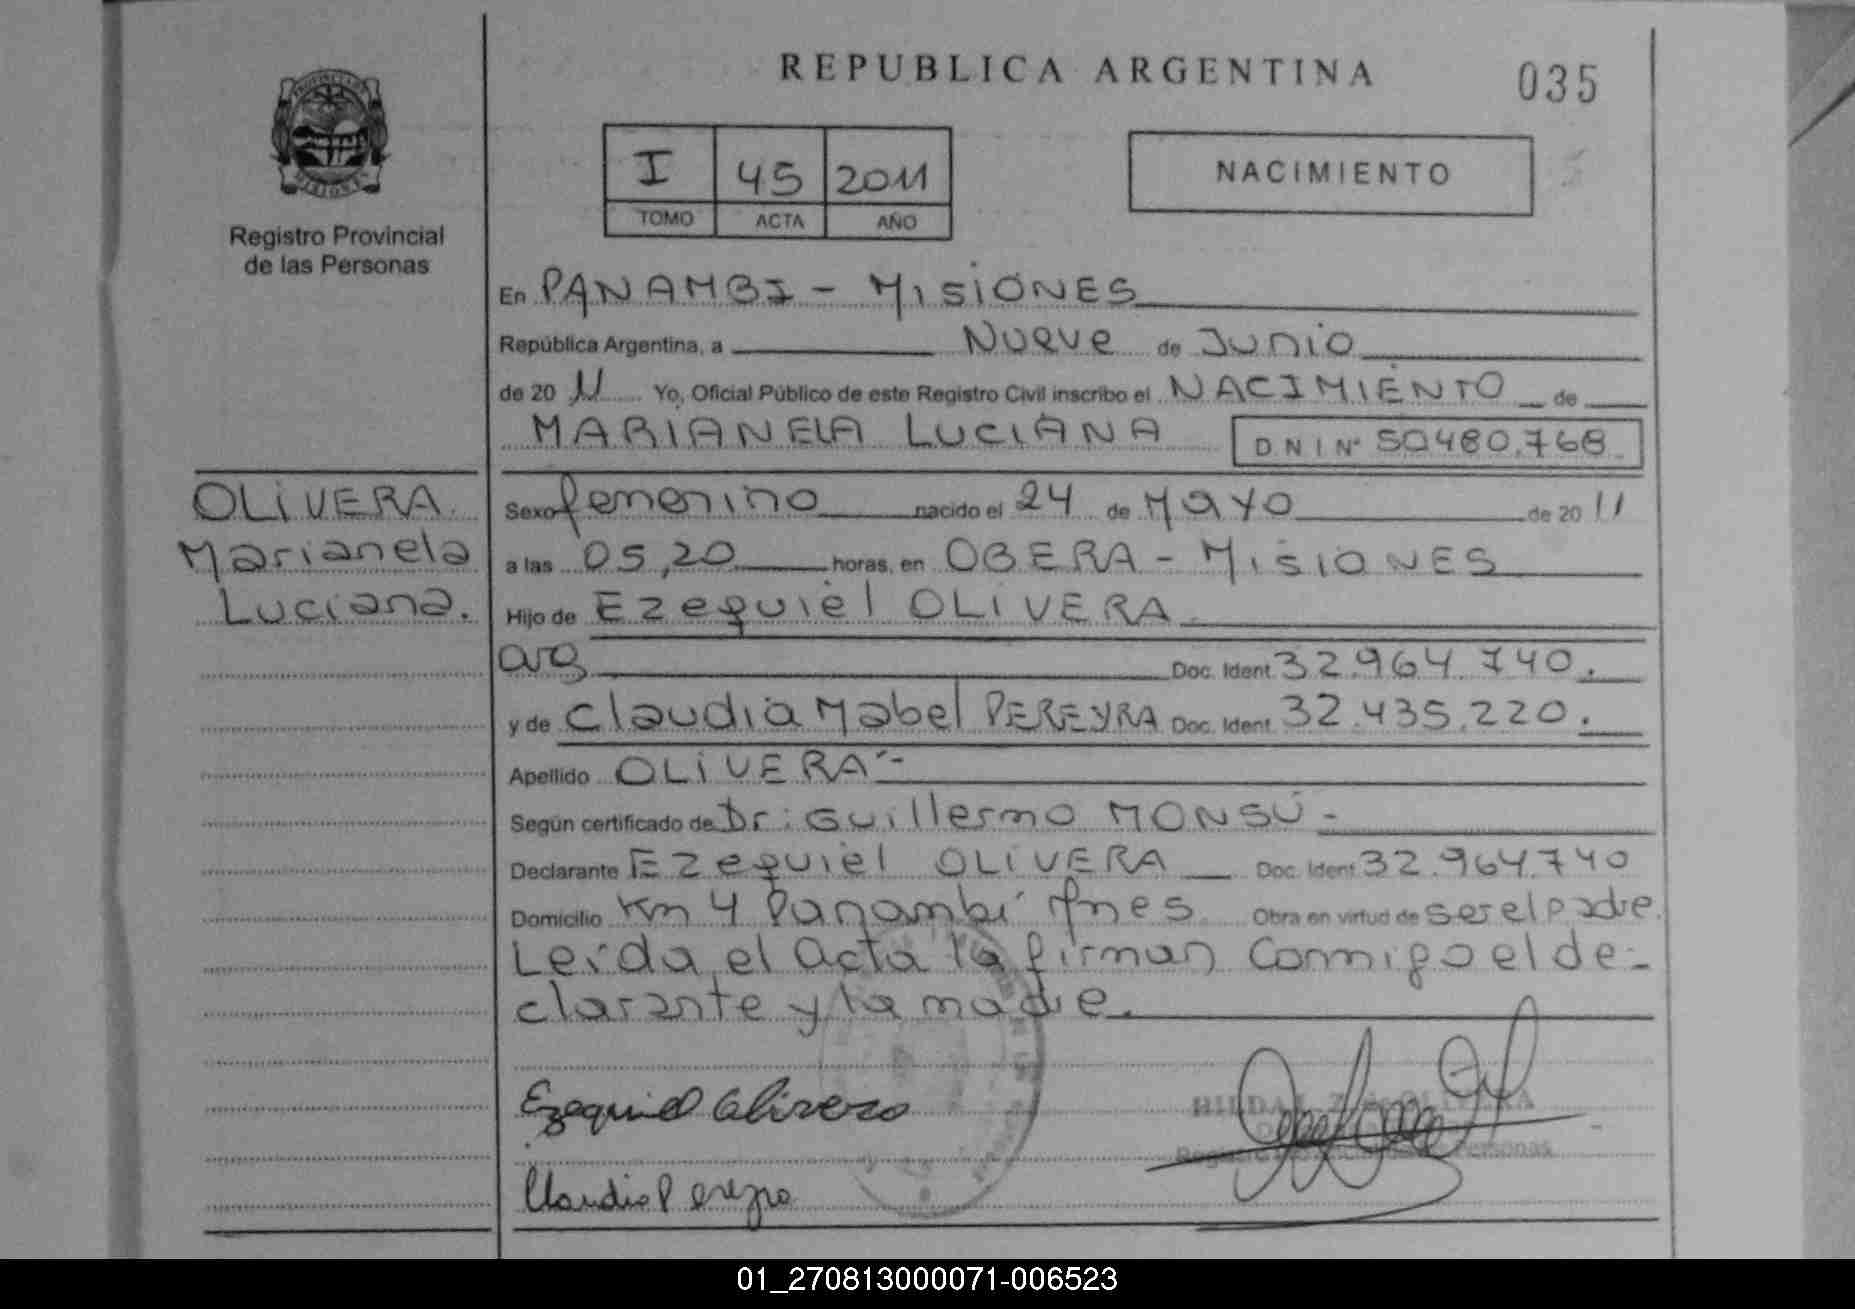 REPUBLICA ARGENTINA
035
PROVINCIA DE
MISIONES
Registro Provincial
de las Personas
I 45 2011
TOMO ACTA AÑO
NACIMIENTO
En PANAMBI - MISIONES
República Argentina, a Nueve de Junio
de 20 11 Yo, Oficial Público de este Registro Civil inscribo el NACIMIENTO de
MARIANELA LUCIANA DNI Nº 50480.768
OLIVERA
Marianela
Luciana.
Sexo femenino nacido el 24 de MAYO de 20 11
a las 05,20 horas, en OBERA - MISIONES
Hijo de Ezequiel OLIVERA
arg Doc. Ident. 32.964.740.
y de Claudia Mabel PEREYRA Doc. Ident. 32.435.220.
Apellido OLIVERA -
Según certificado de Dr: Guillermo MONSÚ -
Declarante Ezequiel OLIVERA Doc. Ident 32.964.740
Domicilio Km 4 Panambí Mnes Obra en virtud de ser el padre.
Leída el acta la firman conmigo el de-
clarante y la madre.
Ezequiel Olivera
HILDA
Registro Personas
Claudia Pereyra
01_270813000071-006523